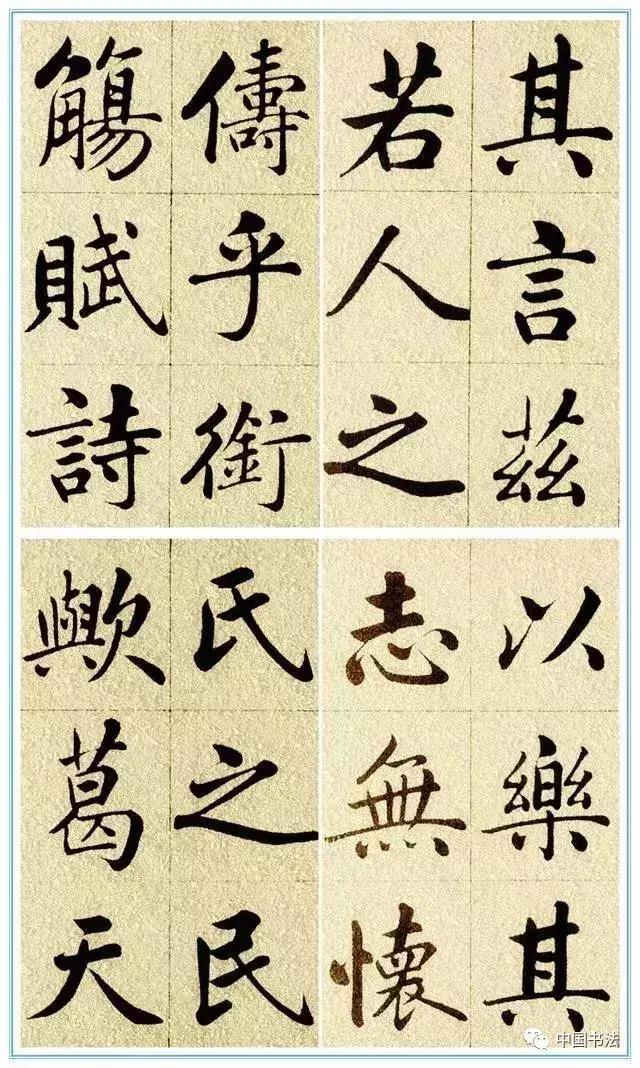 其言茲
若人之
儔乎銜
觴賦詩
以樂其
志無懷
氏之民
歟葛天
中国书法